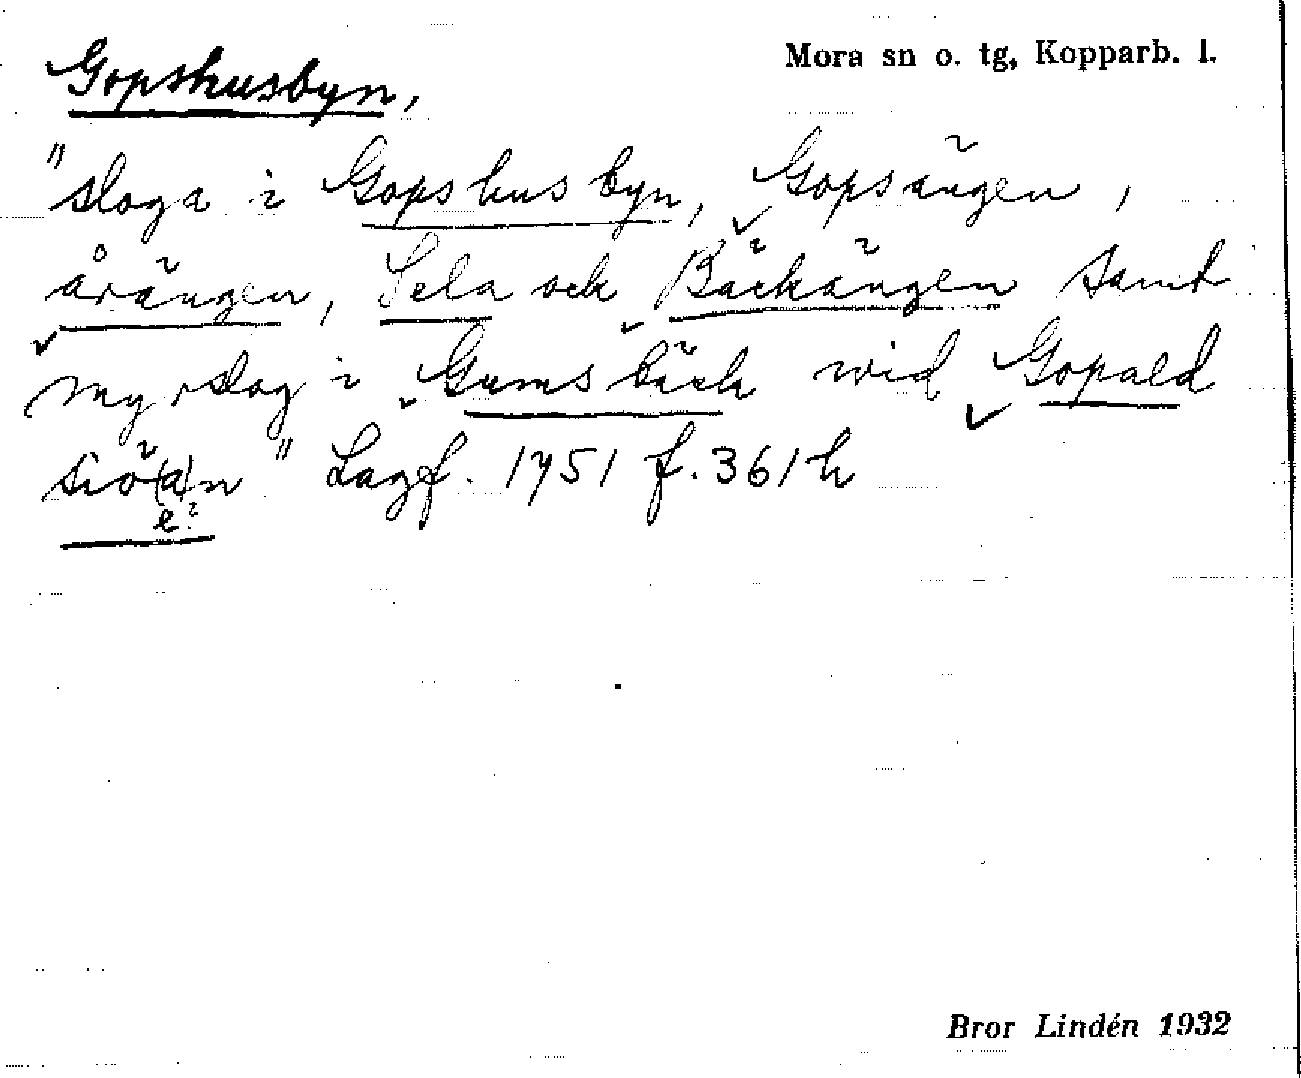 Mora sn o. tg, Kopparb. l.
Gopshusbyn,
"sloga i Gopshusbyn, Gopsängen,
årängen, Sela och Bäckängen samt
myrslog i Gumsbäck wid Gopald
siö(a)n" Lagf. 1751 f. 361 h
e?
Bror Lindén 1932